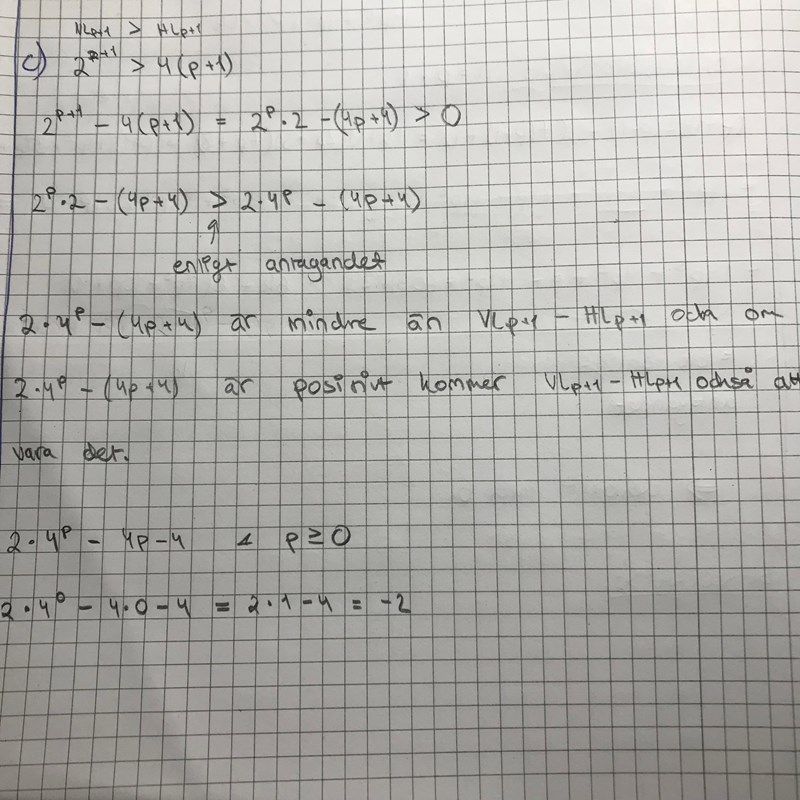 VLp+1 > HLp+1
c) 2^p+1 > 4(p+1)
2^p+1 - 4(p+1) = 2^p · 2 - (4p+4) > 0
2^p · 2 - (4p+4) > 2 · 4^p - (4p+4)
enligt antagandet
2 · 4^p - (4p+4) är mindre än VLp+1 - HLp+1 och om
2 · 4^p - (4p+4) är positivt kommer VLp+1 - HLp+1 också att
vara det.
2 · 4^p - 4p - 4 & p ≥ 0
2 · 4^0 - 4 · 0 - 4 = 2 · 1 - 4 = -2